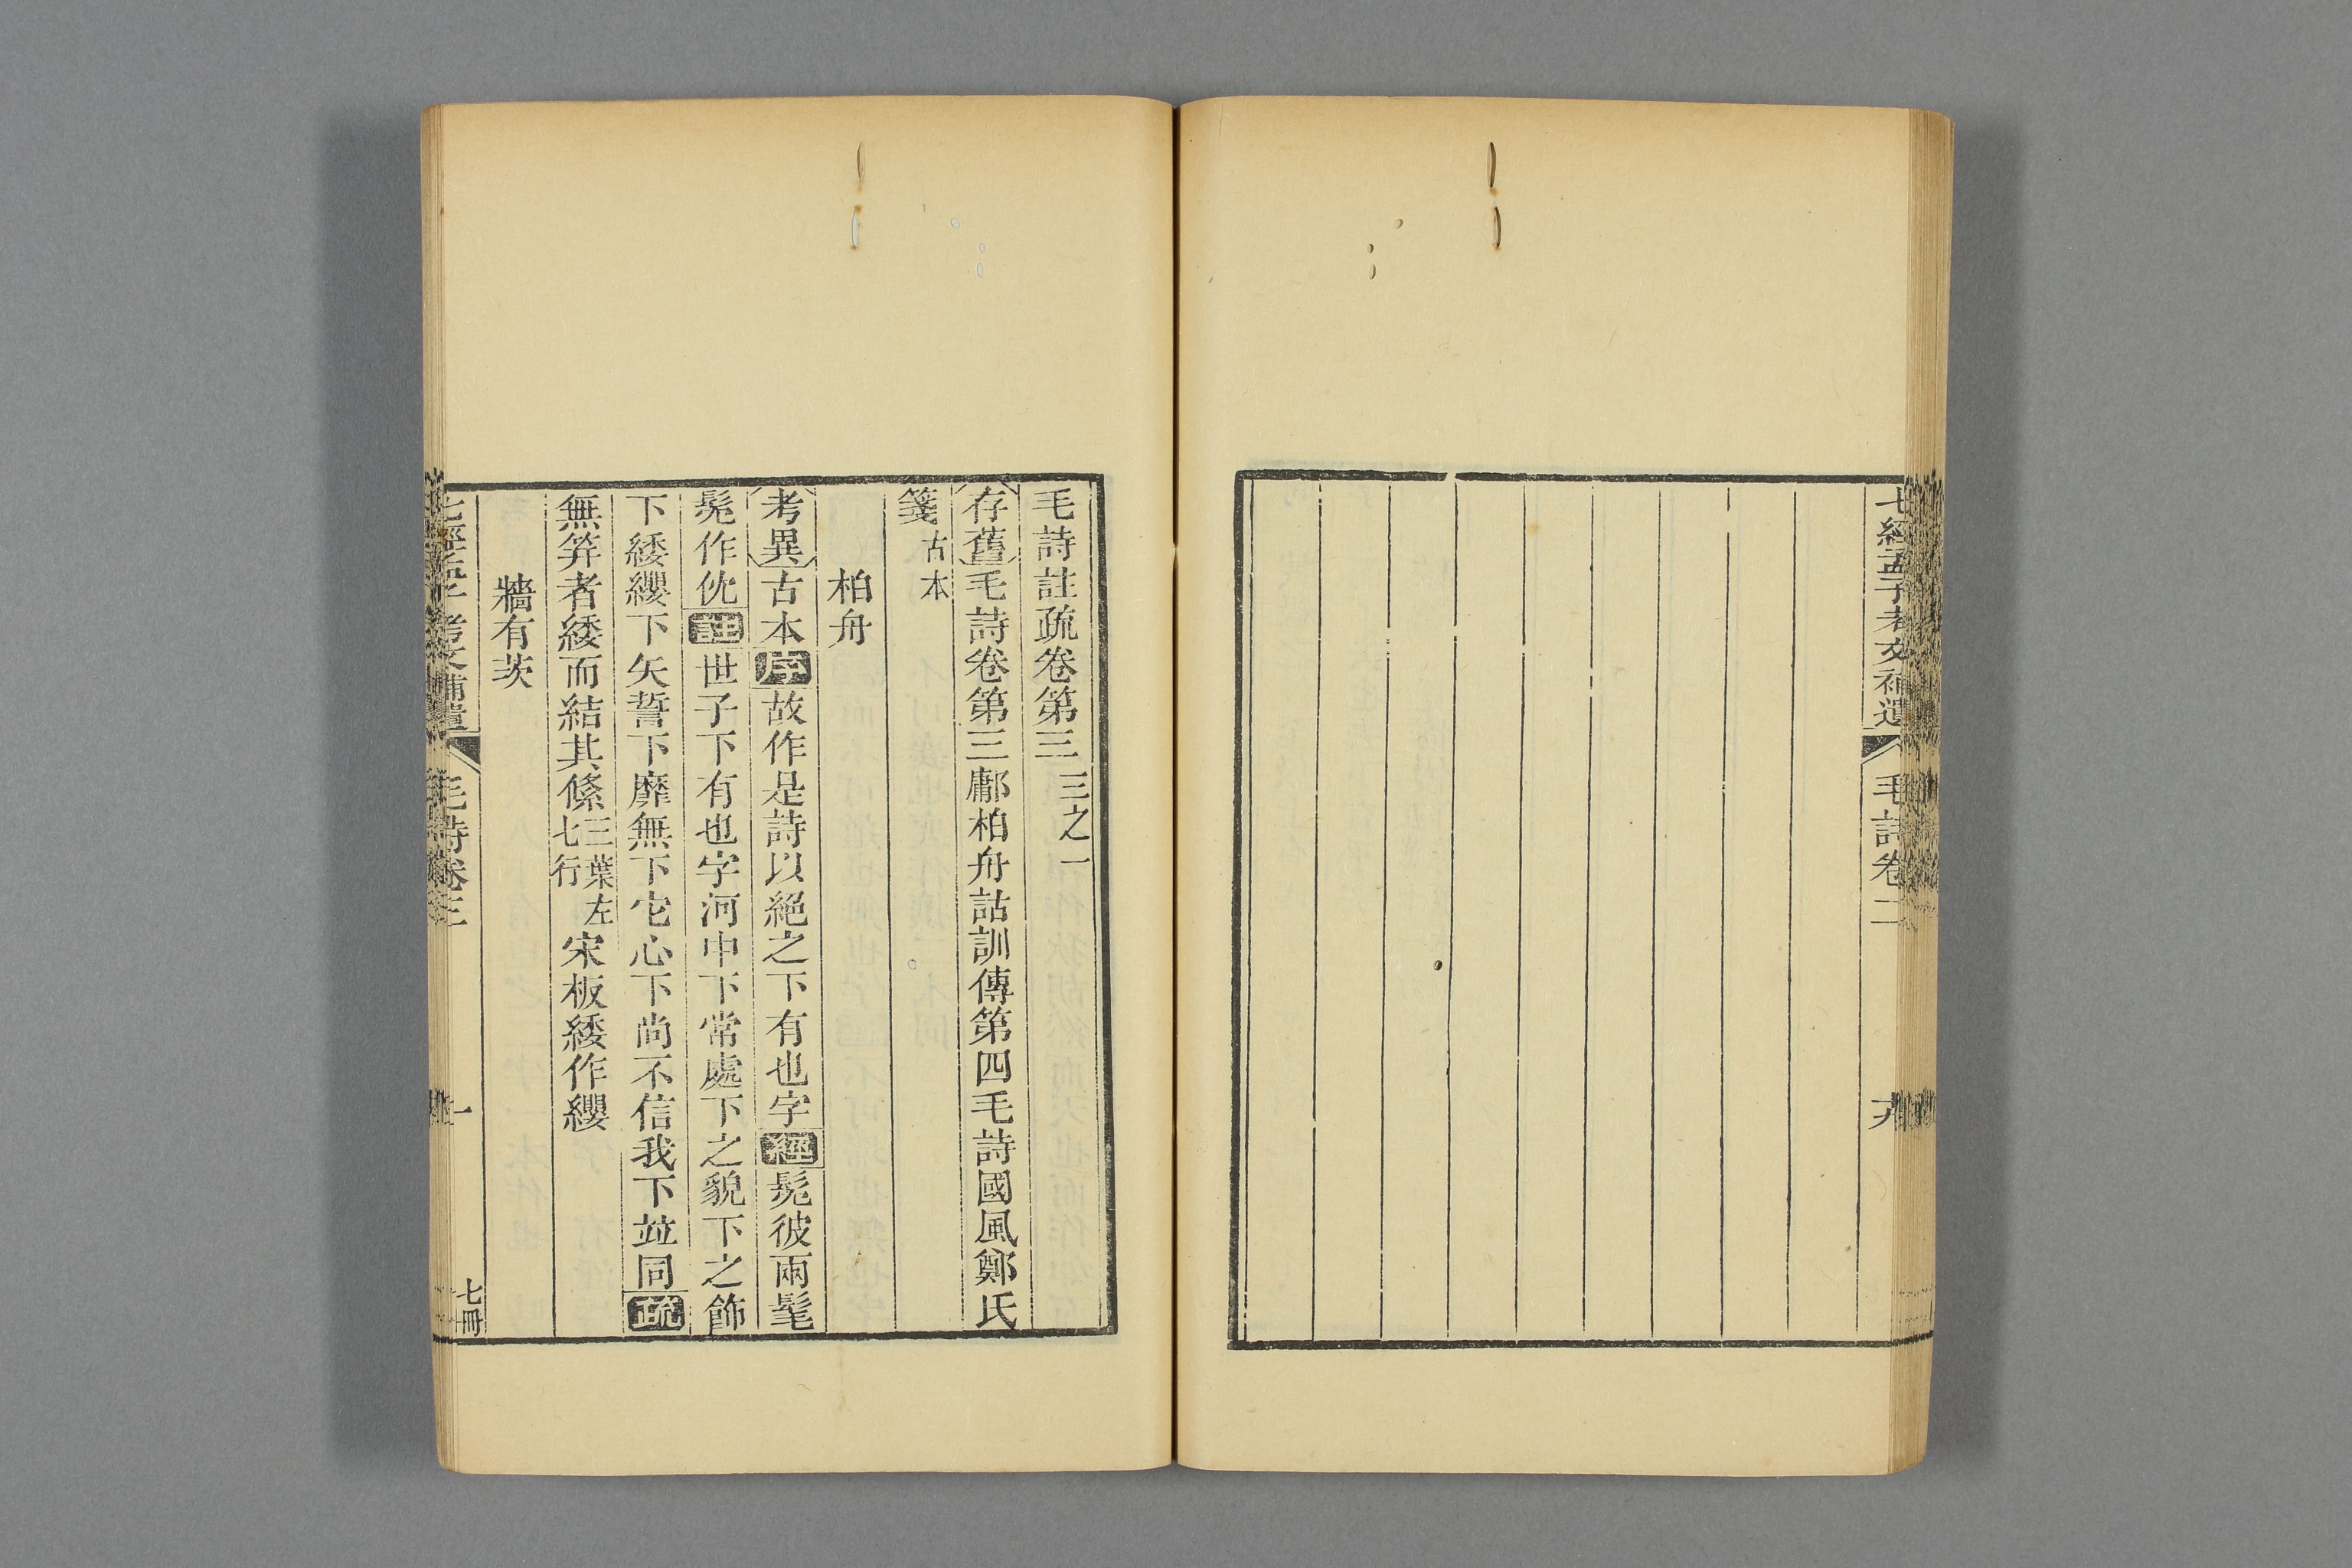 七經孟子考文補遺
毛詩卷二
毛詩註疏卷第三 三之一
存舊毛詩卷第三鄘柏舟詁訓傳第四毛詩國風鄭氏
箋 古本
柏舟
考異古本序故作是詩以絕之下有也字經髧彼兩髦
髧作㐲註世子下有也字河中下常處下之貌下之飾
下緌纓下矢誓下靡無下它心下尚不信我下竝同疏
無笄者緌而結其絛三葉左七行宋板緌作纓
牆有茨
七經孟子考文補遺
毛詩卷三
一
七冊